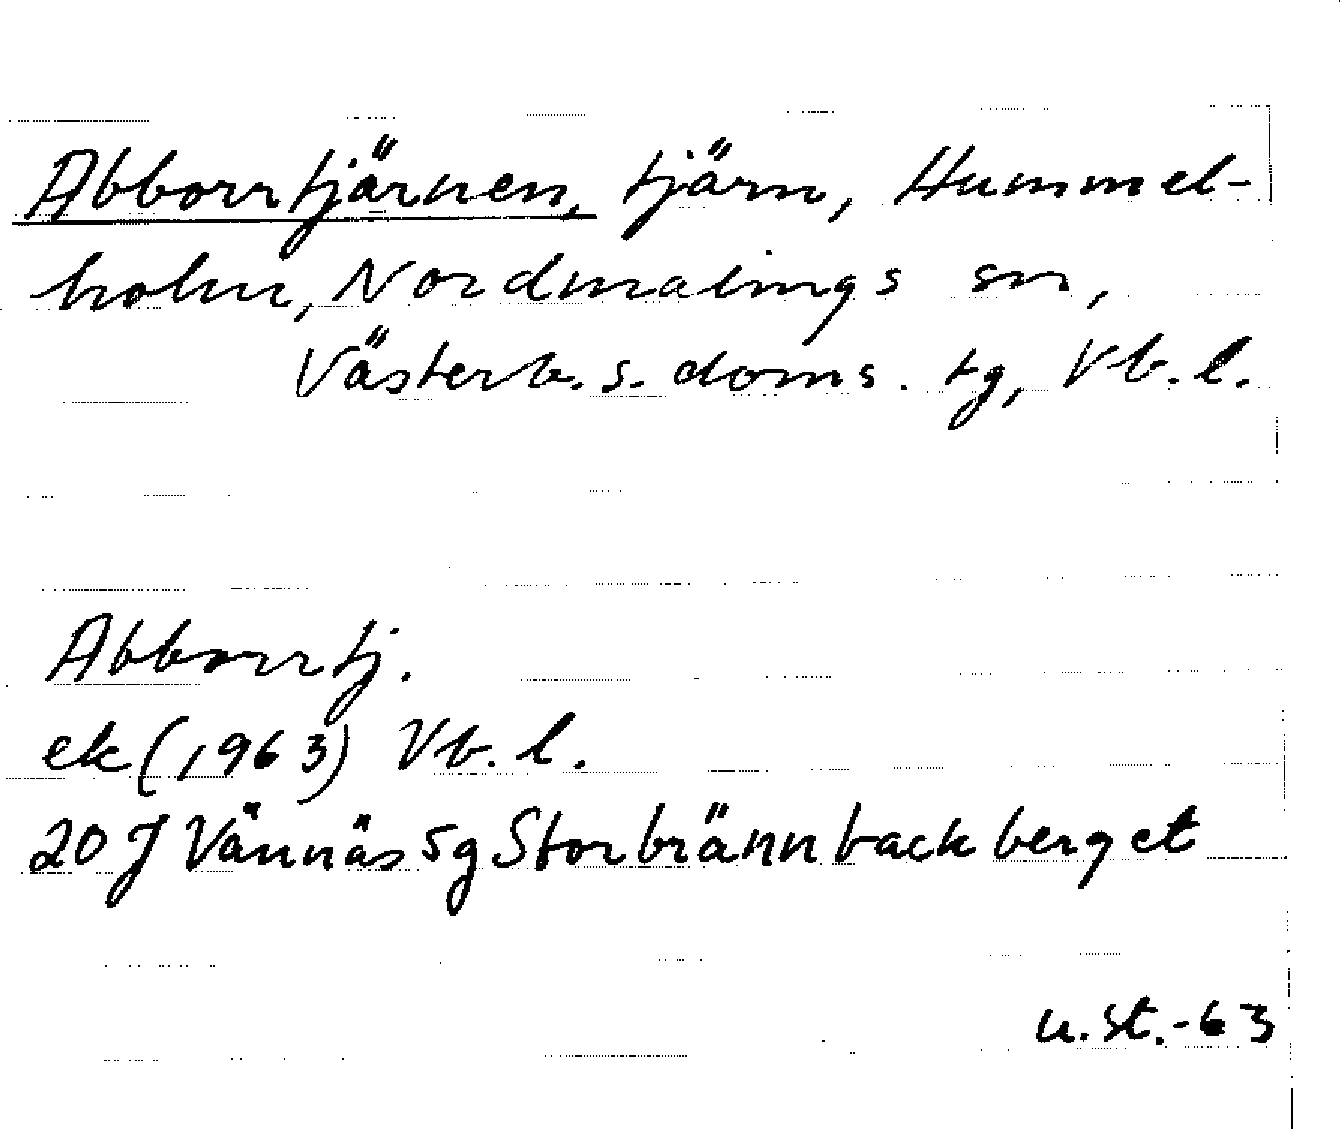 Abborrtjärnen, tjärn, Hummel-
holm, Nordmalings sn,
Västerb. s. doms. tg, Vb. l.
Abborrtj.
ek (1963) Vb. l.
20 J Vännäs 5g Storbrännbackberget
u. st. -63